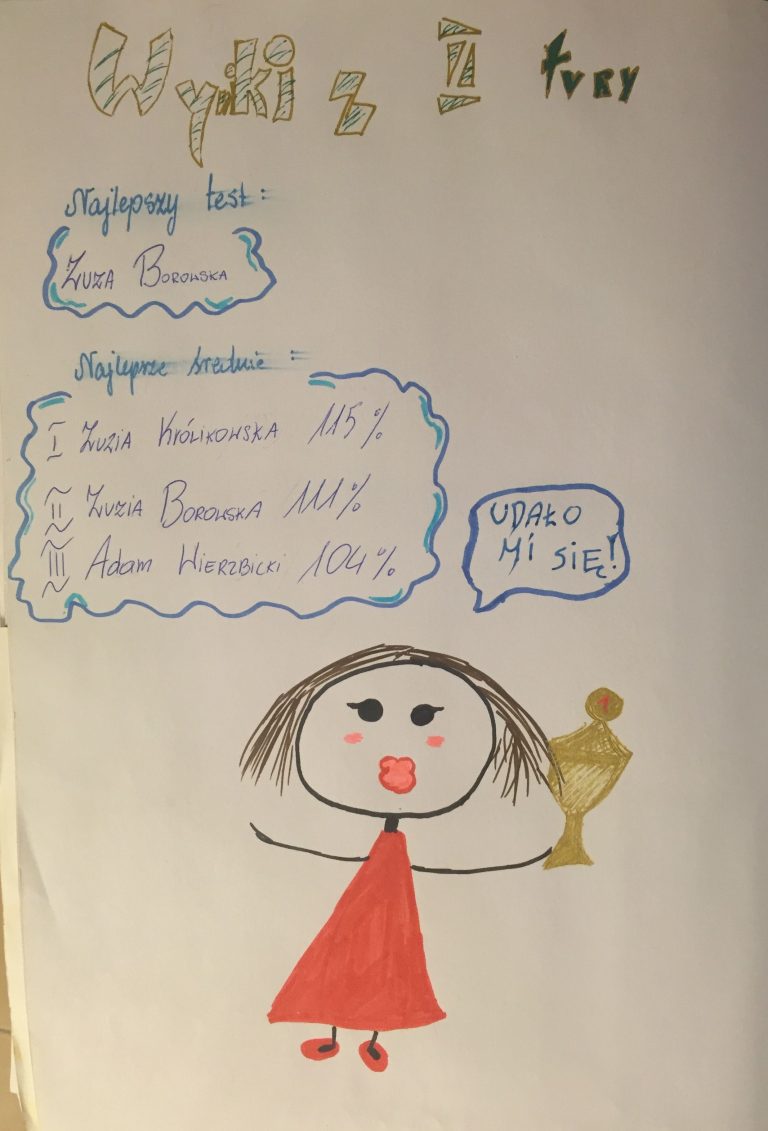 Wyniki z II tury
Najlepszy test:
ZUZA BOROWSKA
Najleprze średnie =
I ZUZIA KRÓLIKOWSKA 115%
II ZUZIA BOROWSKA 111%
III Adam WIERZBICKI 104%
UDAŁO
MI SIĘ!
1